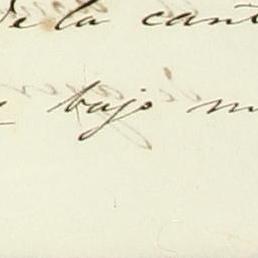 de la cant
bajo m